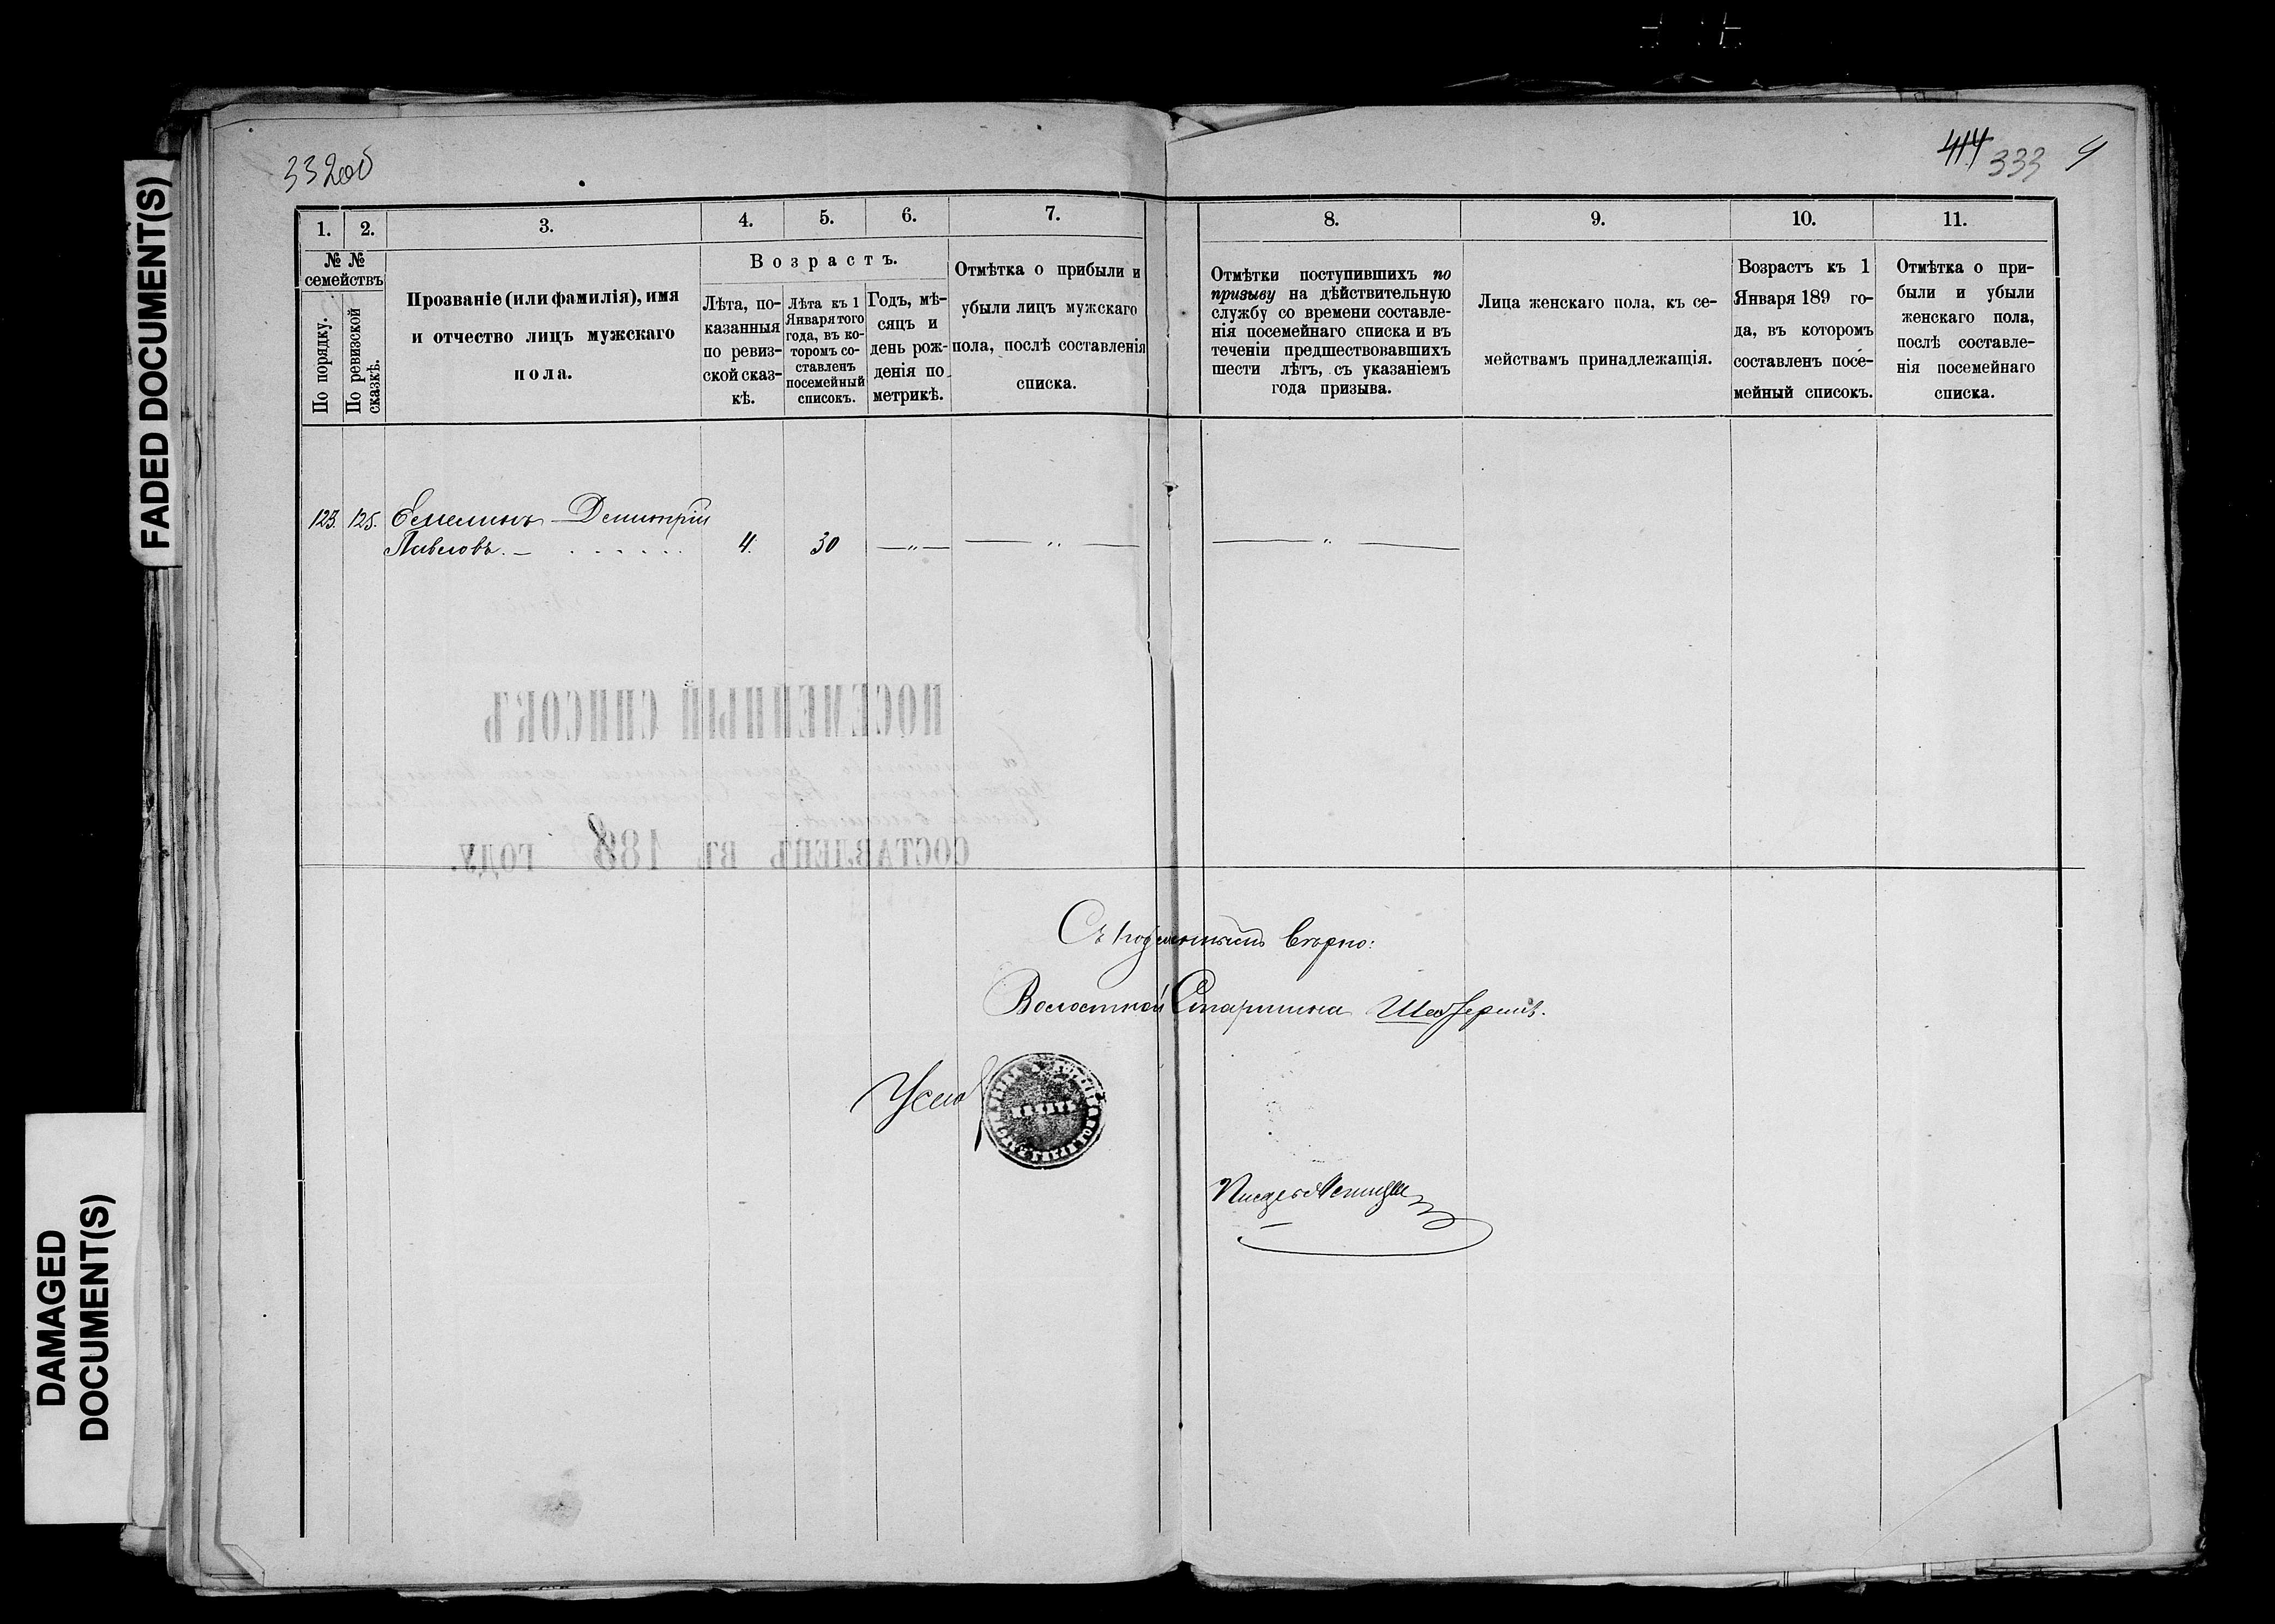 FADED DOCUMENT(S)
DAMAGED
DOCUMENT(S)
332об
414 333
1.
2.
3.
4.
5.
6.
7.
8.
9.
10.
11.
№ №
семействъ
По порядку.
По ревизской
сказкѣ.
Прозваніе (или фамилія), имя
и отчество лицъ мужскаго
пола.
Возрастъ.
Лѣта, по-
казанныя
по ревиз-
ской сказ-
кѣ.
Лѣта къ 1
Января того
года, въ ко-
торомъ со-
ставленъ
посемейный
списокъ.
Годъ, мѣ-
сяцъ и
день рож-
денія по
метрикѣ.
Отмѣтка о прибыли и
убыли лицъ мужскаго
пола, послѣ составленія
списка.
Отмѣтки поступившихъ по
призыву на дѣйствительную
службу со времени составле-
нія посемейнаго списка и въ
теченіи предшествовавшихъ
шести лѣтъ, съ указаніемъ
года призыва.
Лица женскаго пола, къ се-
мействамъ принадлежащія.
Возрастъ къ 1
Января 189 го-
да, въ которомъ
составленъ посе-
мейный списокъ.
Отмѣтка о при-
были и убыли
женскаго пола,
послѣ составле-
нія посемейнаго
списка.
123. 125. Емелинъ Димитрій
Павловъ. — . . . . . . 4. 30 — „ — — „ — — „ —
ПОСЕМЕЙНЫЙ СПИСОКЪ
СОСТАВЛЕНЪ ВЪ 188 ГОДУ.
Съ подлиннымъ вѣрно:
Волостной Старшина
ПЕЧАТЬ
Писарь